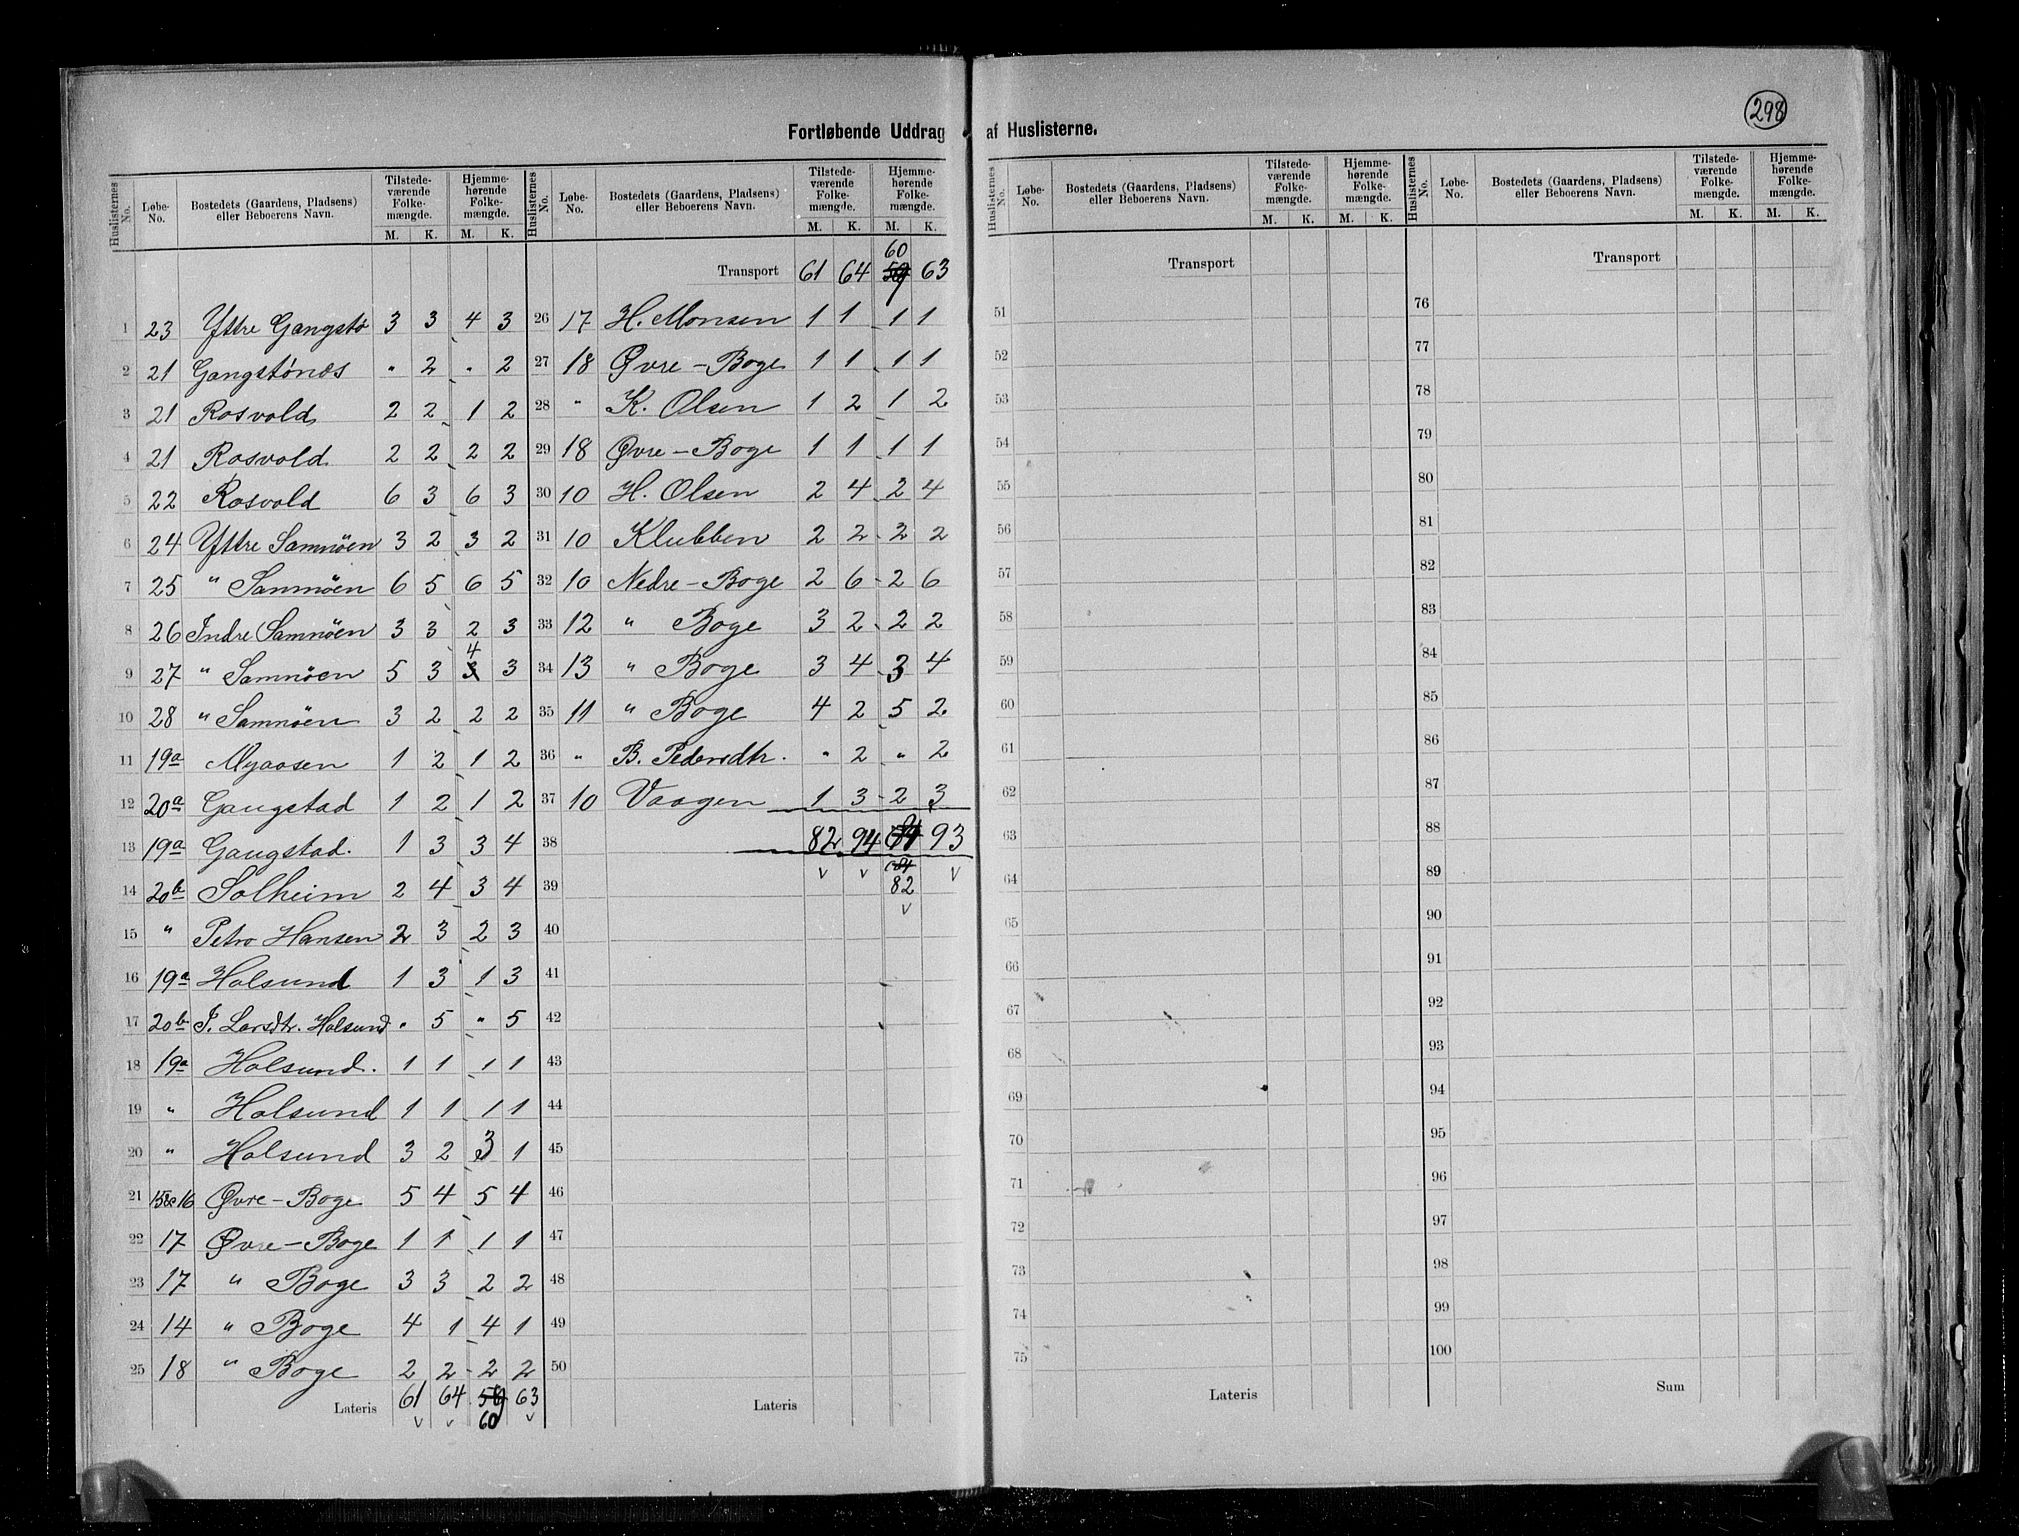 298
Fortløbende Uddrag af Huslisterne.
Huslisternes No. | Løbe-No. | Bostedets (Gaardens, Pladsens) eller Beboerens Navn. | Tilstedeværende Folkemængde. M. K. | Hjemmehørende Folkemængde. M. K.
1 23 Yttre Gangstø 3 3 4 3
2 21 Gangstønæs " 2 " 2
3 21 Rosvold 2 2 1 2
4 21 Rosvold 2 2 2 2
5 22 Rosvold 6 3 6 3
6 24 Yttre Samnøen 3 2 3 2
7 25 " Samnøen 6 5 6 5
8 26 Indre Samnøen 3 3 2 3
9 27 " Samnøen 5 3 3 4 3
10 28 " Samnøen 3 2 2 2
11 19a Myaasen 1 2 1 2
12 20a Gangstad 1 2 1 2
13 19a Gangstad. 1 3 3 4
14 20b Solheim 2 4 3 4
15 " Petro Hansen 2 3 2 3
16 19a Holsund 1 3 1 3
17 20b Larsdtr. Holsund " 5 " 5
18 19a Holsund. 1 1 1 1
19 " Holsund 1 1 1 1
20 " Holsund 3 2 3 1
21 15&16 Øvre-Boge 5 4 5 4
22 17 Øvre-Boge 1 1 1 1
23 17 " Boge 3 3 2 2
24 14 " Boge 4 1 4 1
25 18 " Boge 2 2 2 2
Lateris 61 64 59 63
60
Huslisternes No. | Løbe-No. | Bostedets (Gaardens, Pladsens) eller Beboerens Navn. | Tilstedeværende Folkemængde. M. K. | Hjemmehørende Folkemængde. M. K.
60
Transport 61 64 59 63
26 17 H. Monsen 1 1 1 1
27 18 Øvre-Boge 1 1 1 1
28 " K. Olsen 1 2 1 2
29 18 Øvre-Boge 1 1 1 1
30 10 H. Olsen 2 4 2 4
31 10 Klubben 2 2 2 2
32 10 Nedre-Boge 2 6 2 6
33 12 " Boge 3 2 2 2
34 13 " Boge 3 4 3 4
35 11 " Boge 4 2 5 2
36 " B. Pedersdtr. " 2 " 2
37 10 Vaagen 1 3 2 3
38 82 94 93
39 82
40
41
42
43
44
45
46
47
48
49
50
Lateris
Huslisternes No. | Løbe-No. | Bostedets (Gaardens, Pladsens) eller Beboerens Navn. | Tilstedeværende Folkemængde. M. K. | Hjemmehørende Folkemængde. M. K.
Transport
51
52
53
54
55
56
57
58
59
60
61
62
63
64
65
66
67
68
69
70
71
72
73
74
75
Lateris
Huslisternes No. | Løbe-No. | Bostedets (Gaardens, Pladsens) eller Beboerens Navn. | Tilstedeværende Folkemængde. M. K. | Hjemmehørende Folkemængde. M. K.
Transport
76
77
78
79
80
81
82
83
84
85
86
87
88
89
90
91
92
93
94
95
96
97
98
99
100
Sum